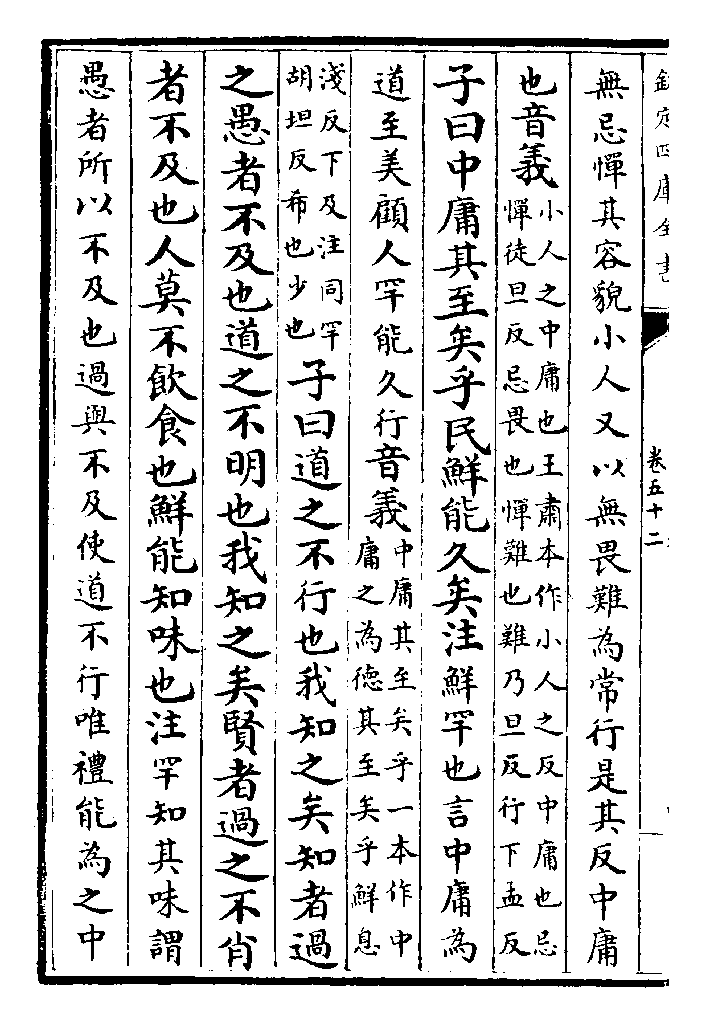 欽定四庫全書
卷五十二
無忌憚其容貌小人又以無畏難為常行是其反中庸
也音義小人之中庸也王肅本作小人之反中庸也忌
憚徒旦反忌畏也憚難也難乃旦反行下孟反
子曰中庸其至矣乎民鮮能久矣注鮮罕也言中庸為
道至美顧人罕能久行音義中庸其至矣乎一本作中
庸之為德其至矣乎鮮息
淺反下及注同罕
胡坦反希也少也子曰道之不行也我知之矣知者過
之愚者不及也道之不明也我知之矣賢者過之不肖
者不及也人莫不飲食也鮮能知味也注罕知其味謂
愚者所以不及也過與不及使道不行唯禮能為之中